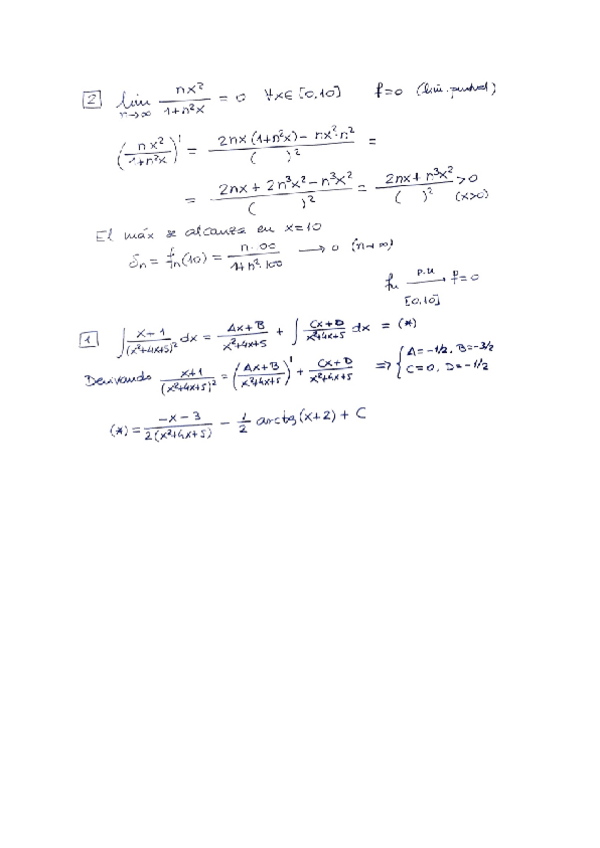 2 lim n→∞ nx²/(1+n²x) = 0 ∀x∈[0,10] f=0 (lím. puntual)
(nx²/(1+n²x))' = (2nx(1+n²x) - nx²·n²)/( )² =
= (2nx + 2n³x² - n³x²)/( )² = (2nx + n³x²)/( )² >0 (x>0)
El máx se alcanza en x=10
δn = fn(10) = n·oc/(1+n²·100) → 0 (n→∞)
fn p.u → f=0
[0,10]
1 ∫ (x+1)/(x²+4x+5)² dx = (Ax+B)/(x²+4x+5) + ∫ (Cx+D)/(x²+4x+5) dx = (*)
Derivando (x+1)/(x²+4x+5)² = ((Ax+B)/(x²+4x+5))' + (Cx+D)/(x²+4x+5) ⇒ { A=-1/2, B=-3/2
C=0, D=-1/2
(*) = (-x-3)/(2(x²+4x+5)) - 1/2 arctg(x+2) + C